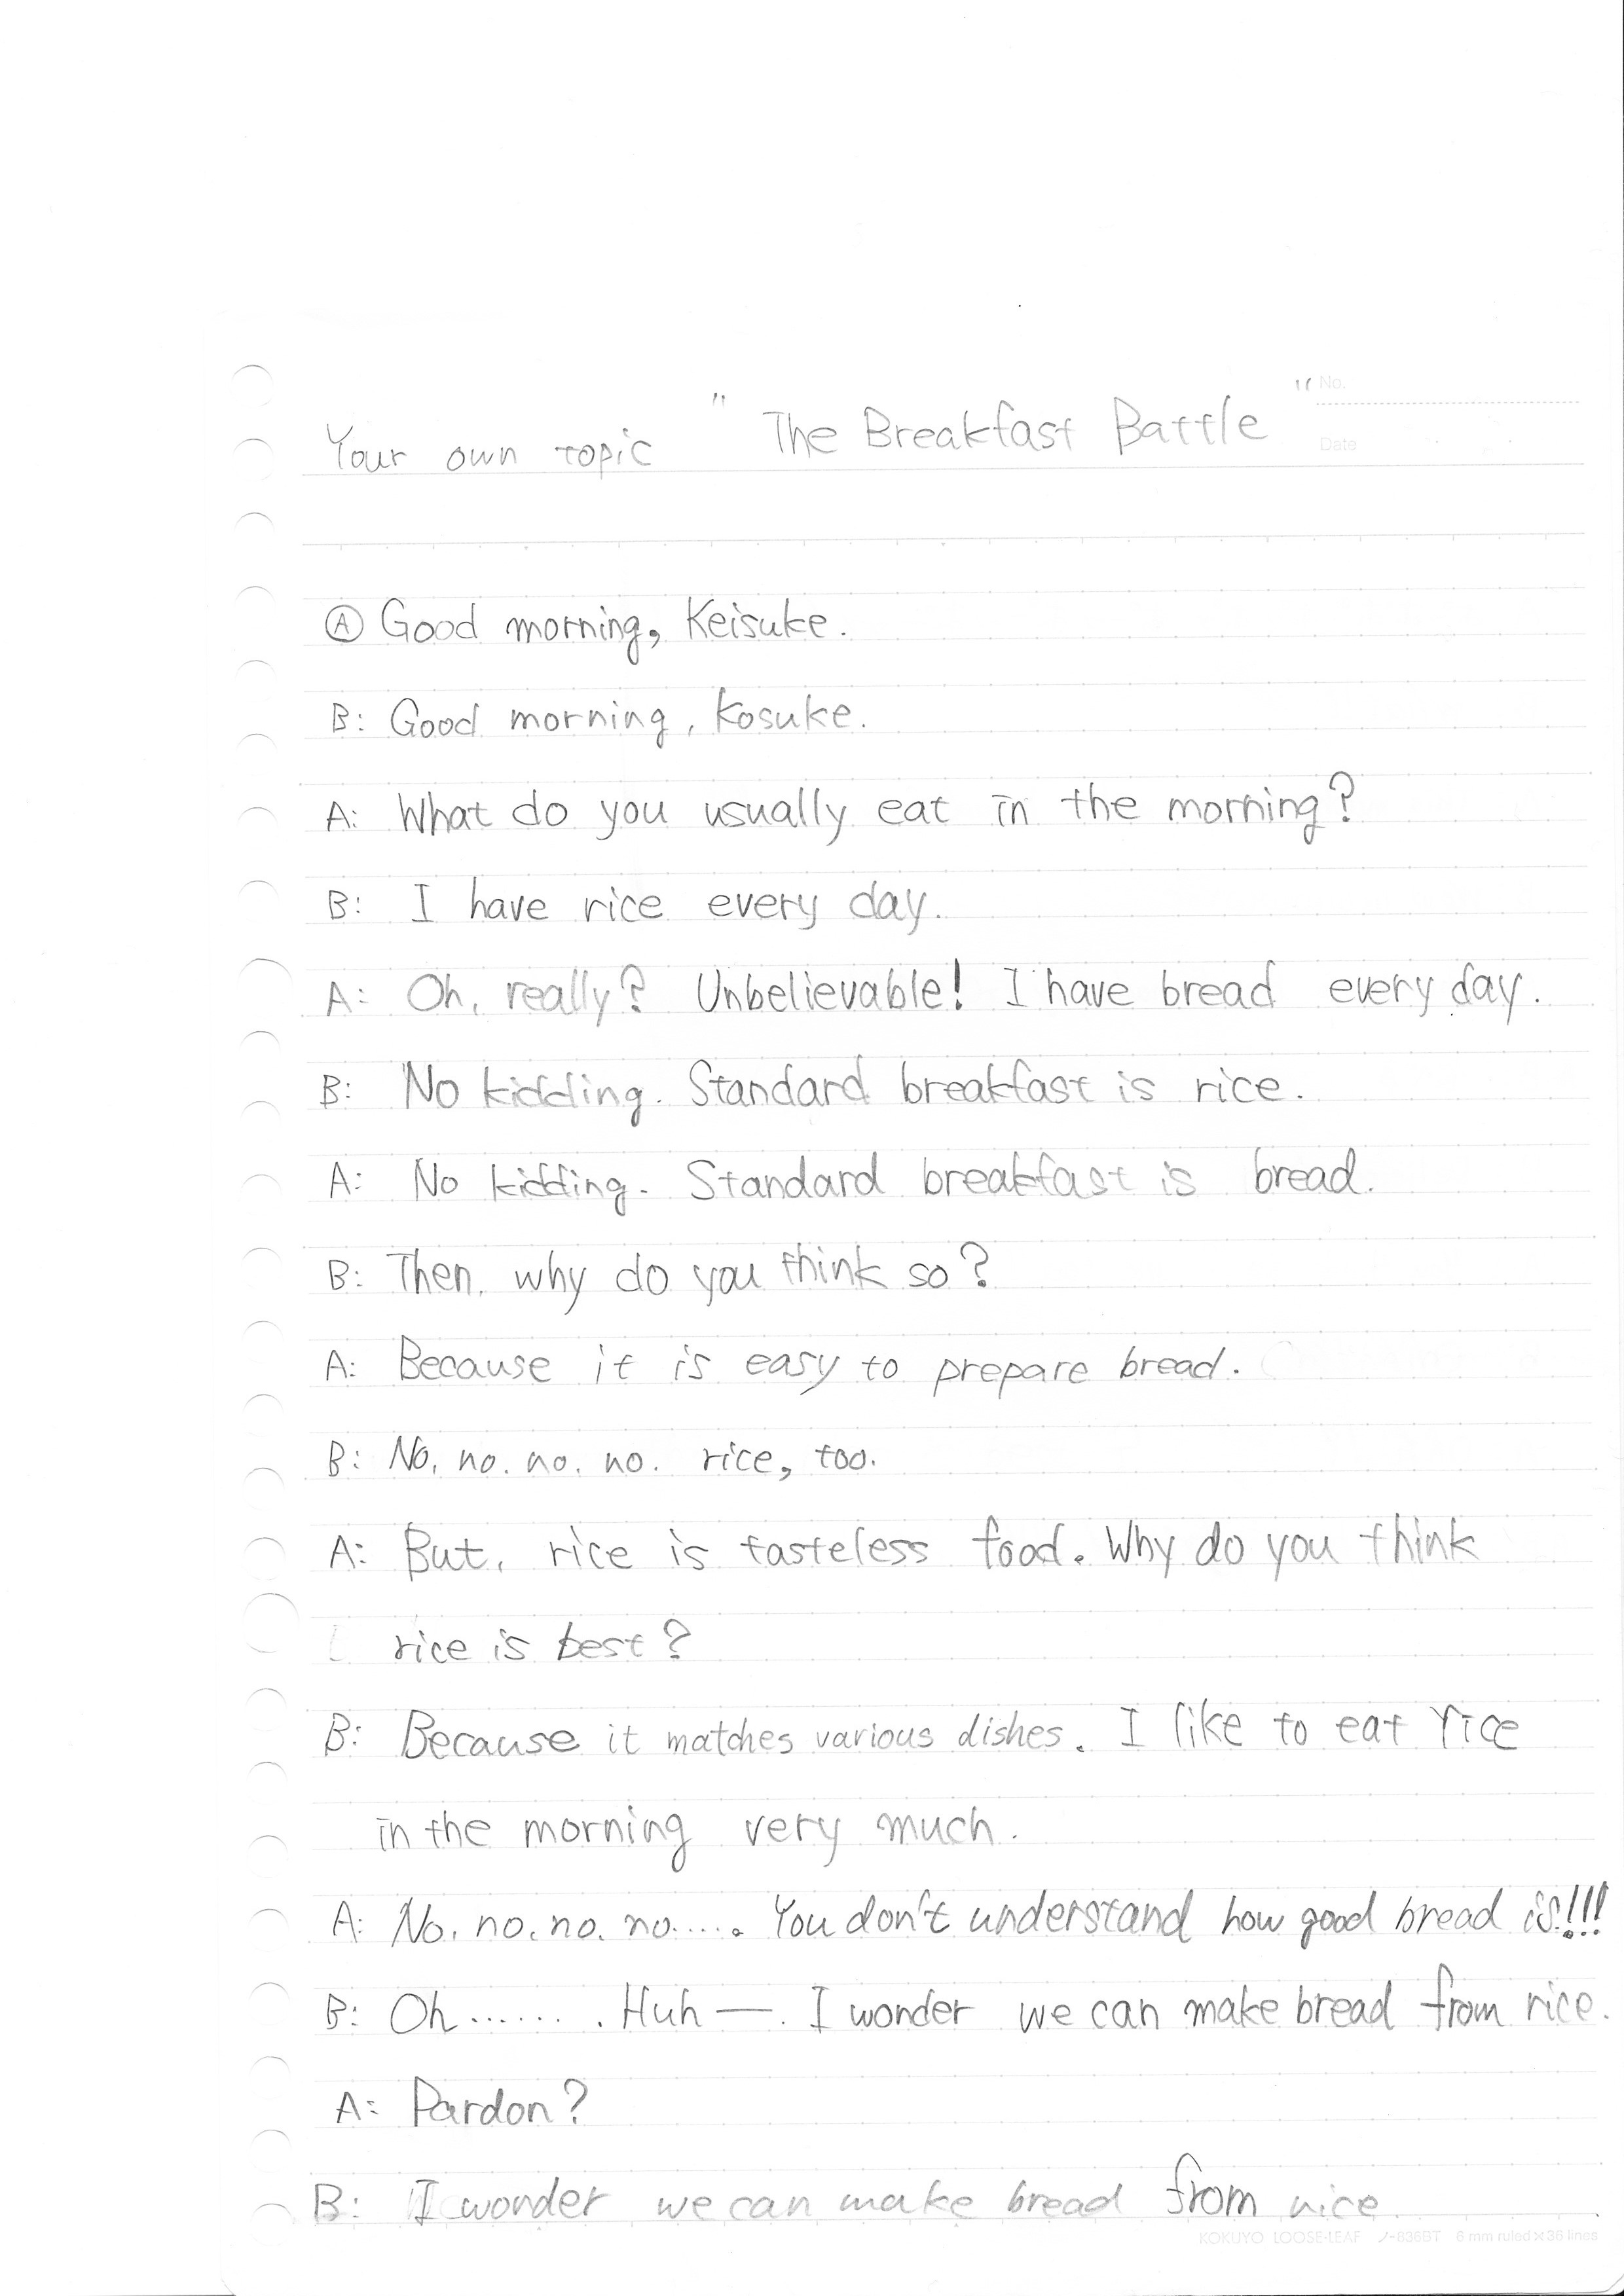 No.
" The Breakfast Battle "
Your own topic
Date
Ⓐ Good morning, Keisuke.
B: Good morning, Kosuke.
A: What do you usually eat in the morning?
B: I have rice every day.
A: Oh, really? Unbelievable! I have bread every day.
B: No kidding. Standard breakfast is rice.
A: No kidding. Standard breakfast is bread.
B: Then, why do you think so?
A: Because it is easy to prepare bread.
B: No, no. no. no. rice, too.
A: But, rice is tasteless food. Why do you think
rice is best?
B: Because it matches various dishes. I like to eat rice
in the morning very much.
A: No, no, no, no...... You don't understand how good bread is!!!
B: Oh....... Huh —. I wonder we can make bread from rice.
A: Pardon?
B: I wonder we can make bread from rice.
KOKUYO LOOSE-LEAF ノ-836BT 6 mm ruled×36 lines